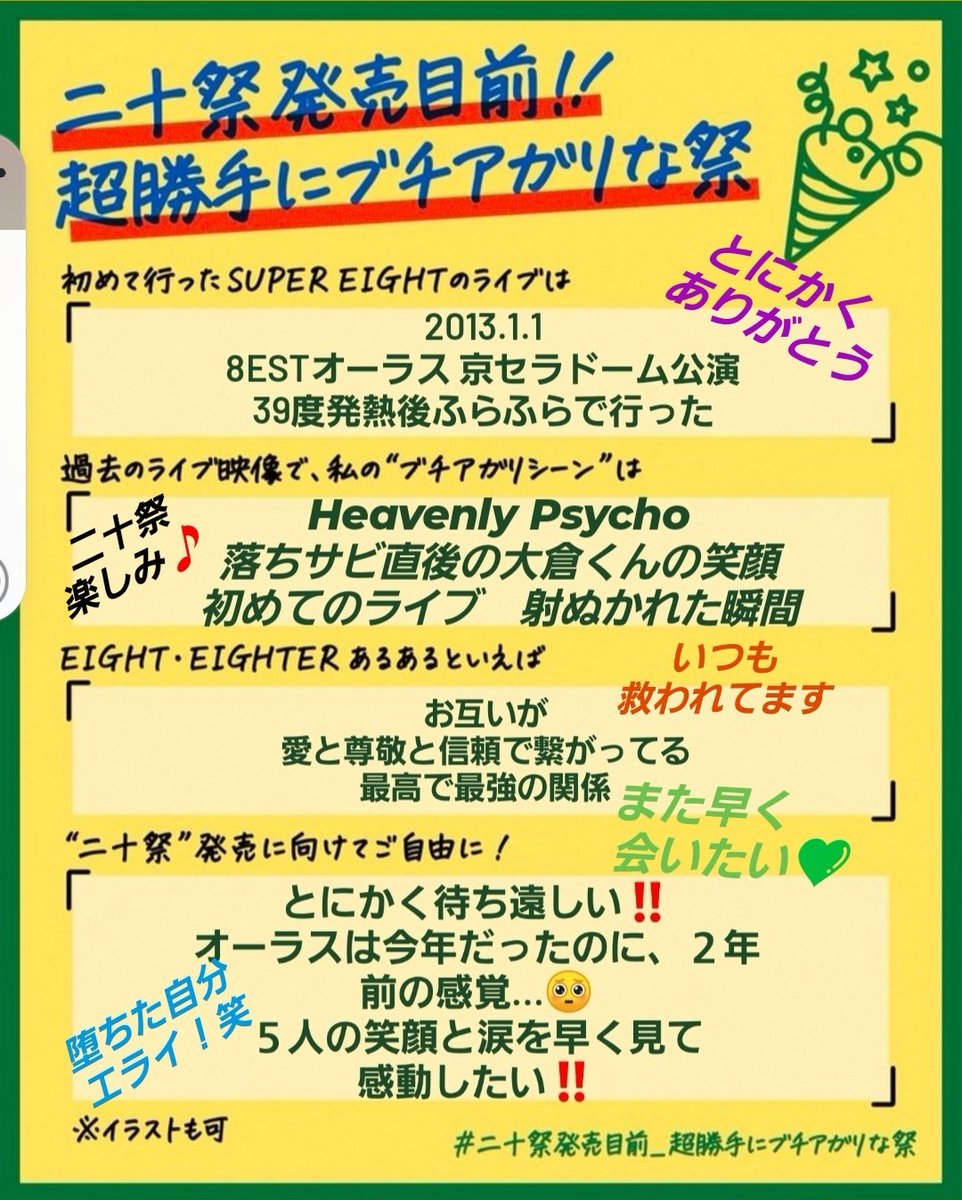 二十祭発売目前!!
超勝手にブチアガリな祭
初めて行ったSUPER EIGHTのライブは
とにかく
ありがとう
2013.1.1
8ESTオーラス 京セラドーム公演
39度発熱後ふらふらで行った
過去のライブ映像で、私の“ブチアガリシーン”は
二十祭
楽しみ♪
Heavenly Psycho
落ちサビ直後の大倉くんの笑顔
初めてのライブ　射ぬかれた瞬間
EIGHT・EIGHTERあるあるといえば
いつも
救われてます
お互いが
愛と尊敬と信頼で繋がってる
最高で最強の関係
また早く
会いたい💚
“二十祭”発売に向けてご自由に!
とにかく待ち遠しい‼️
オーラスは今年だったのに、２年
前の感覚…🥺
５人の笑顔と涙を早く見て
感動したい‼️
堕ちた自分
エライ！笑
※イラストも可
#二十祭発売目前_超勝手にブチアガリな祭